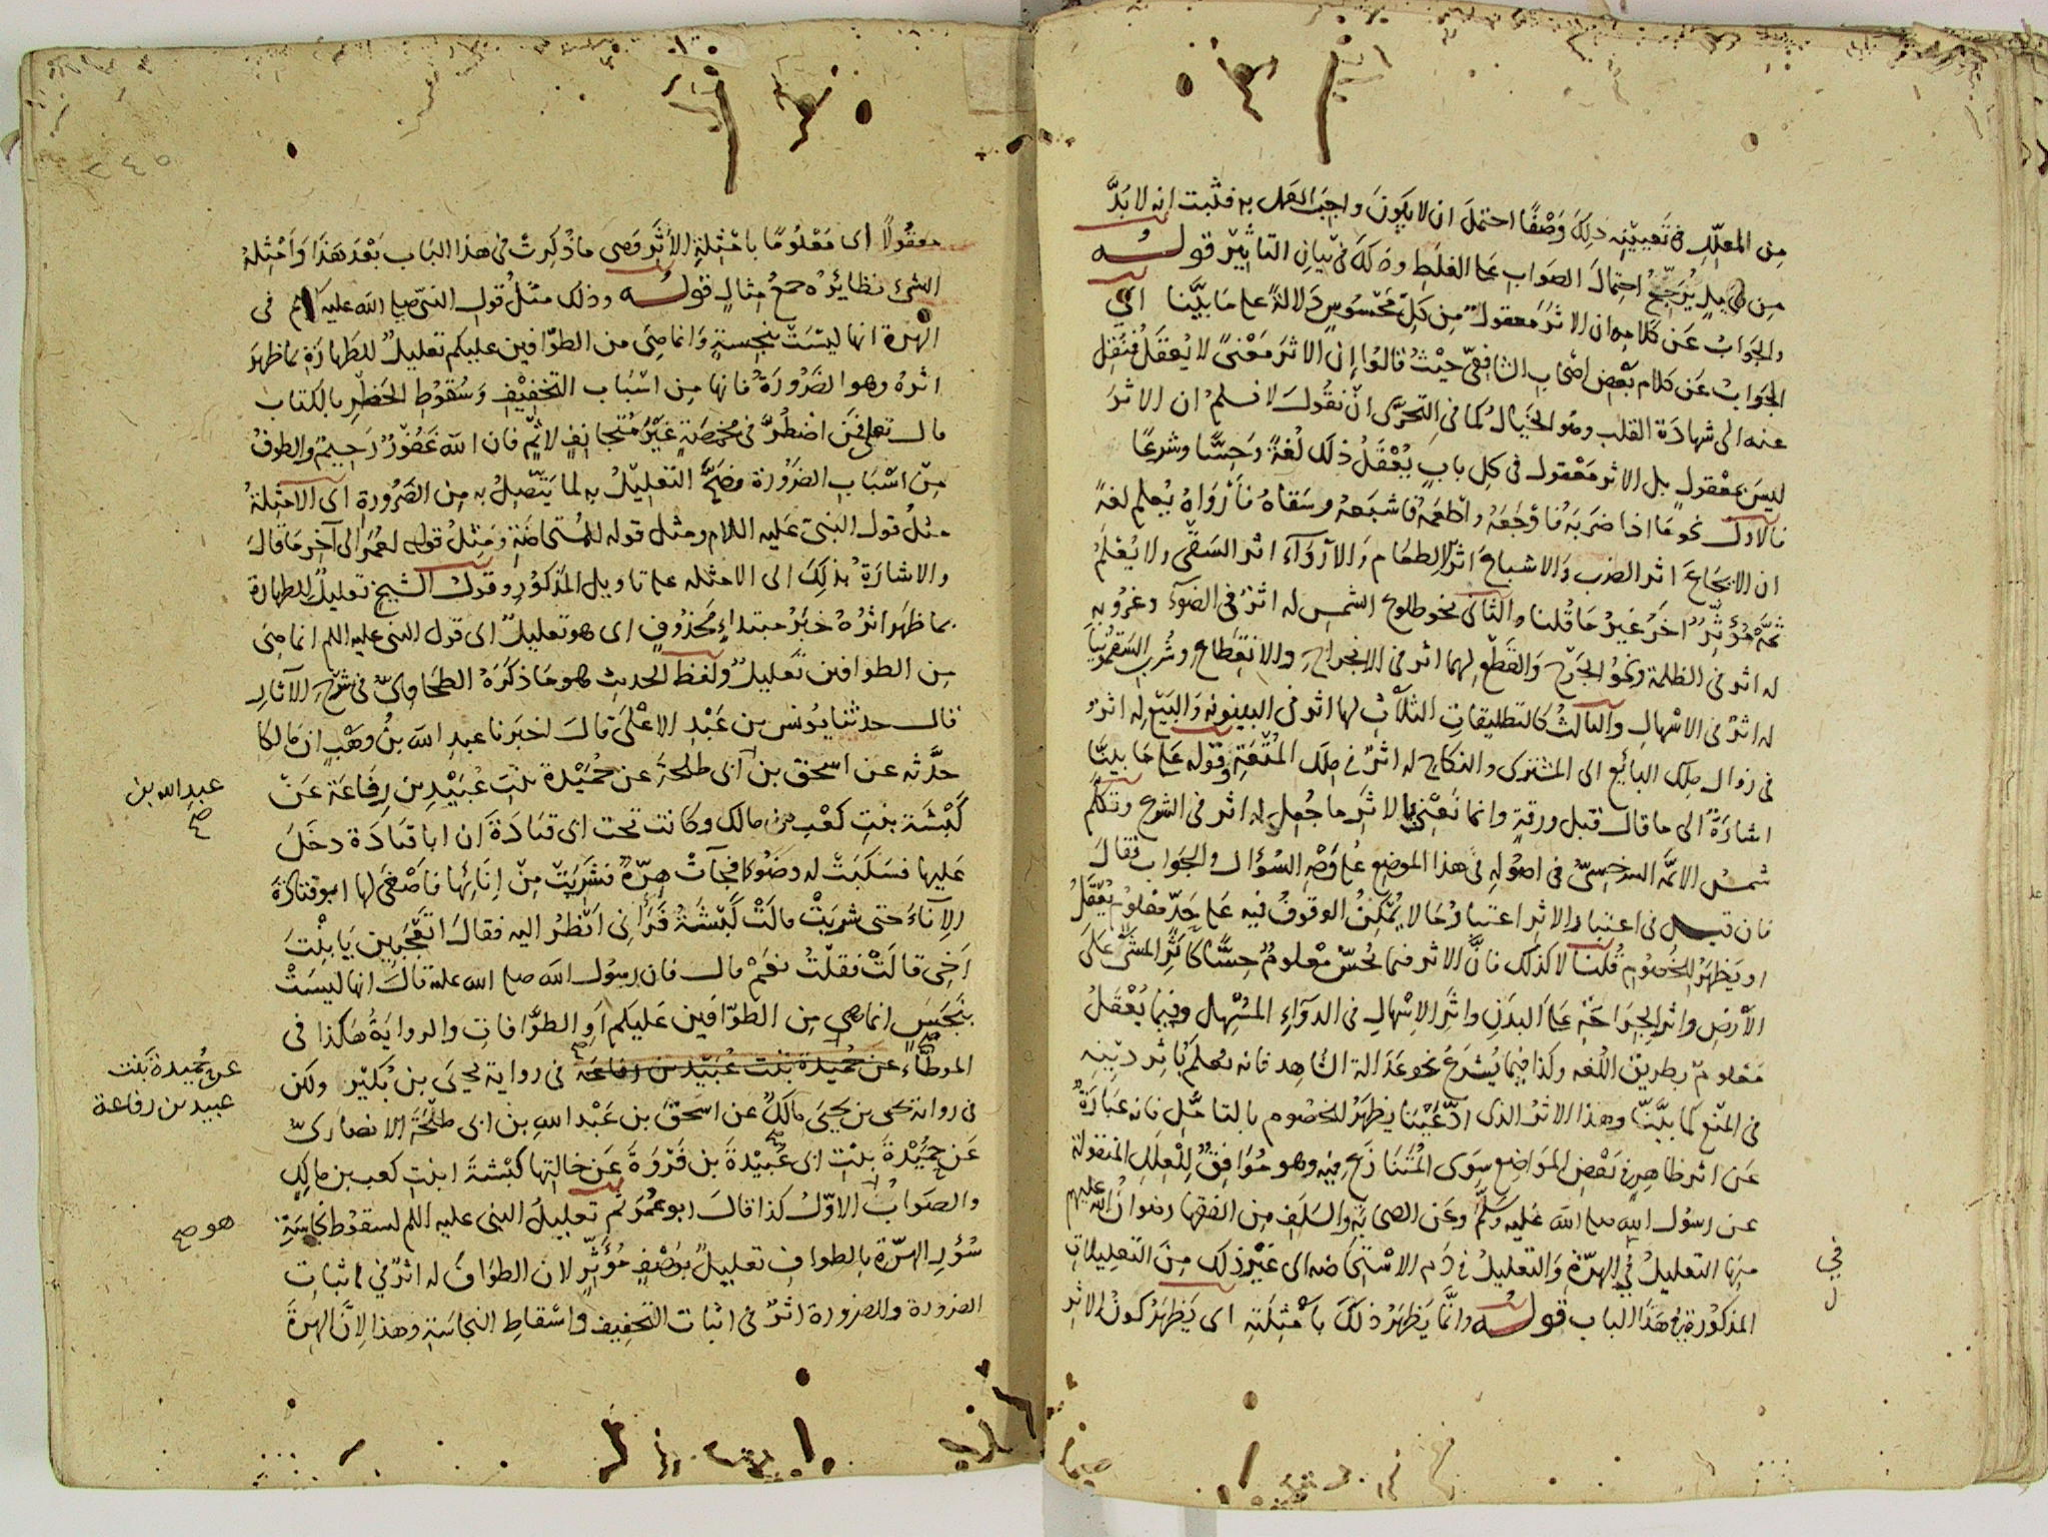 من المعلّل في تعيينه ذلك وَصْفًا احتملَ ان لا يكونَ واجبَ العمل به فثبت انه لا بدَّ
مِن دليلٍ يُرَجِّحُ احتمالَ الصواب على الغلط وذلك في بيان التاثير قولـه
والجوابُ عن كلامه ان الاثرَ معقولٌ من كلّ محسُوسٍ دَلالةً على مَا بيَّنا اي
الجوَابُ عَن كلام بعْض اصْحاب الشافعيّ حيْثُ قالوا اِنّ الاثرَ مَعْنىً لا يُعقَلُ فنُقِلَ
عنه الى شهادَة القلب وهو الخيالُ كما في التحرّى انْ نقُولَ لا نسلمُ ان الاثرَ
ليسَ بمعْقولٍ بل الاثر مَعْقول في كل بابٍ يُعْقَلُ ذلك لُغةً وَحِسًّا وشرعًا
فالاوّلُ نحو مَا اذا ضرَبَهُ فاوْجَعَهُ واطعَمهُ فاشبَعهُ وسَقاهُ فاَرْوَاهُ يُعلم لغةً
ان الايجاعَ اثر الضرب وَالاشباعَ اثرُ الطعَام وَالاروَآءَ اثر السَّقْى ولا يُعْلمُ
ثمَّه مُؤثّرٌ اخَرُ غيرُ مَا قُلنا والثانى نحو طلوع الشمس له اثرٌ في الضوءِ وغروبه
له اثر في الظلمة ونحوُ الجَرْح وَالقَطْع لهما اثر في الانجراح والانقطاع وشُرب السَّقمُونيا
له اثرٌ في الاسْهال والثالثُ كالتطليقاتِ الثلاثِ لها اثر في البينونه وَالبَيْع له اثرٌ
في زوال ملك البائع الى المشترى والنكاح له اثرٌ في ملك المُتْعَةِ وقوله على مَا بينّا
اشارَةٌ الى ما قال قبل ورقةٍ وانما نَعْنى بالاثَر ما جُعِل له اثر في الشرع وتكلّم
شمسُ الائمّه السرخسِىُّ في اصوُله في هذا الموضِع على وَجْه السُؤال والجوَاب فقالَ
فان قيـل في اعتبار الاثر اعتبارُ مَا لا يُمكِنُ الوقوفُ فيه على حَدٍّ معْلومٍ يُعْقَلُ
او يَظهَرُ للخصُوم قُلنا لا كذلك فانَّ الاثر فيما يُحسُّ معْلومٌ حِسًّا كاثَرِ المشْىِ على
الاَرْضِ واثرِ الجرَاحَةِ على البدَن واثَرِ الاِسْهالِ في الدوَآءِ المسْهِل وفيما يُعْقَلُ
مَعلومٌ بطريْق اللُغه وكذا فيما يُشرَعُ نحوعَدَالة الشاهد فانه يُعلَمُ باثر دِيْنه
في المنْع كما بيَّنّا وهذا الاثرُ الذى ادّعيْنَا يظهَرُ للخصُوم بالتامّل فانه عبارَةٌ
عَن اثر ظاهرٍ في بَعْضِ المَوَاضِع سِوَى المُتَنَازَعِ فيه وهو مُوَافِقٌ لِلْعِلَلِ المنقولة
عن رسُول الله صلى الله عليه وسَلّم وعَن الصحابَةِ والسَلَفِ مِن الفقهاءِ رضوانُ الله عليهم
منها التعليلُ في الهرّةِ والتعليلُ في دَم الاسْتِحَاضه الى غيْر ذلك مِن التعليلاتِ
المذكورة في هَذا الباب قولـه وانّما يَظهَرُ ذلكَ بامْثلتِه اى يَظهَرُ كونُ الاثرِ
في
معقُولًا اى مَعْلومًا بامْثلةِ الاَثَر وهى ما ذُكِرتْ في هذا البَاب بَعْدَ هَذَا وَامْثِلَةُ
الشىء نظائرُه جمعُ مِثالٍ قولـه وذلك مثلُ قول النبىّ صلى الله عليه وسلم في
الهرّة انها ليْسَتْ بنجِسةٍ وَانما هِىَ من الطوّافين عليكم تعليلٌ للطهارَة بما ظهرَ
اثرهُ وهو الضَّرُورَةُ فانها مِن اسْبَاب التخفِيْفِ وَسُقوُطِ الحَظْرِ بالكتاب
قال تعالى فمَن اضطُرَّ في مخمَصَةٍ غيْرَ مُتَجَانِفٍ لاِثمٍ فان الله غَفوُرٌ رَحِيمٌ والطوفُ
مِن اسْبَابِ الضَرُورة فصَحَّ التعليْلُ به لما يَتّصِلُ به مِن الضَرُورةِ اى الامثلةُ
مثلُ قول النبىّ عليه السلام ومثل قوله للمُستحاضَةِ وَمثلُ قوله لعُمَرَ الى آخر مَا قالَ
والاشارَةُ بذلكَ الى الامثله على تاويل المذكوُر وقولُ الشيخ تعليلٌ للطهارة
بما ظهَر اثرُهُ خبَرُ مبتداءٍ مَحْذُوفٍ اى هو تعليلٌ اى قول النبى عليه السلم انما هِىَ
مِن الطوافين تعليلٌ ولفظ الحديثِ هو مَا ذكَرَهُ الطحاوِىّ في شرْح الآثار
قال حدثنا يُونسُ بن عَبْد الاعْلى قالَ اخبَرنا عبدِ الله بنُ وَهْبٍ ان مالكا
حدَّثه عن اسحق بن ابى طلحةَ عن حُمَيْدة بنْتِ عُبَيْد بن رِفاعَة عَن
كَبْشَة بنتِ كعْب بن مالك وكانت تحت ابى قتادَةَ ان ابا قتادَة دخَلَ
عَليها فسَكبَتْ له وضُوًءا فجآتْ هِرّةٌ فشَرِبَتْ مِن اِنَائِها فاَصْغَى لها ابو قتادَةَ
الاِنآءَ حتى شربَتْ قالَتْ كَبْشَةُ فَرَآنى اَنْظرُ اليه فقالَ اَتعْجَبِين يَا بنْتَ
اَخِى قالَتْ فقلْتُ نعَمْ قال فان رسُول الله صلى الله عليه قالَ انها ليسَتْ
بنَجَسٍ انما هى مِن الطوّافين عَليكم اَو الطوَّافات والروايَةُ هَكذا في
الموطّاء عَن حُميدة بنْت عُبَيْد بن رفاعَة في رواية يحيى بن بُكَيْر ولكن
في رواية يحيى بن يحيى مالكٌ عن اسحَقَ بن عَبْد اللهِ بن ابى طلْحَةَ الانصارىّ
عَن حميْدةَ بنْتِ ابى عُبيْدةَ بن فرْوَةَ عَن خالتِها كبْشةَ ابنتِ كعب بن مالكٍ
والصوَابُ الاوّلُ كذا قالَ ابو عُمَر ثم تعليلُ النبى عليه السلم لسقوُط نجاسَةِ
سُؤر الهرّة بالطوافِ تعليلٌ بوَصْفٍ مُؤثّرٍ لان الطوَافَ له اثرٌ في اثبات
الضرورة وللضرورة اثرٌ في اثبات التخفيف واسْقاطِ النجاسَة وهذا لِانَّ الهِرةَ
عبد الله بن
صح
عن حُميدة بنت
عبيد بن رفاعة
هو صح